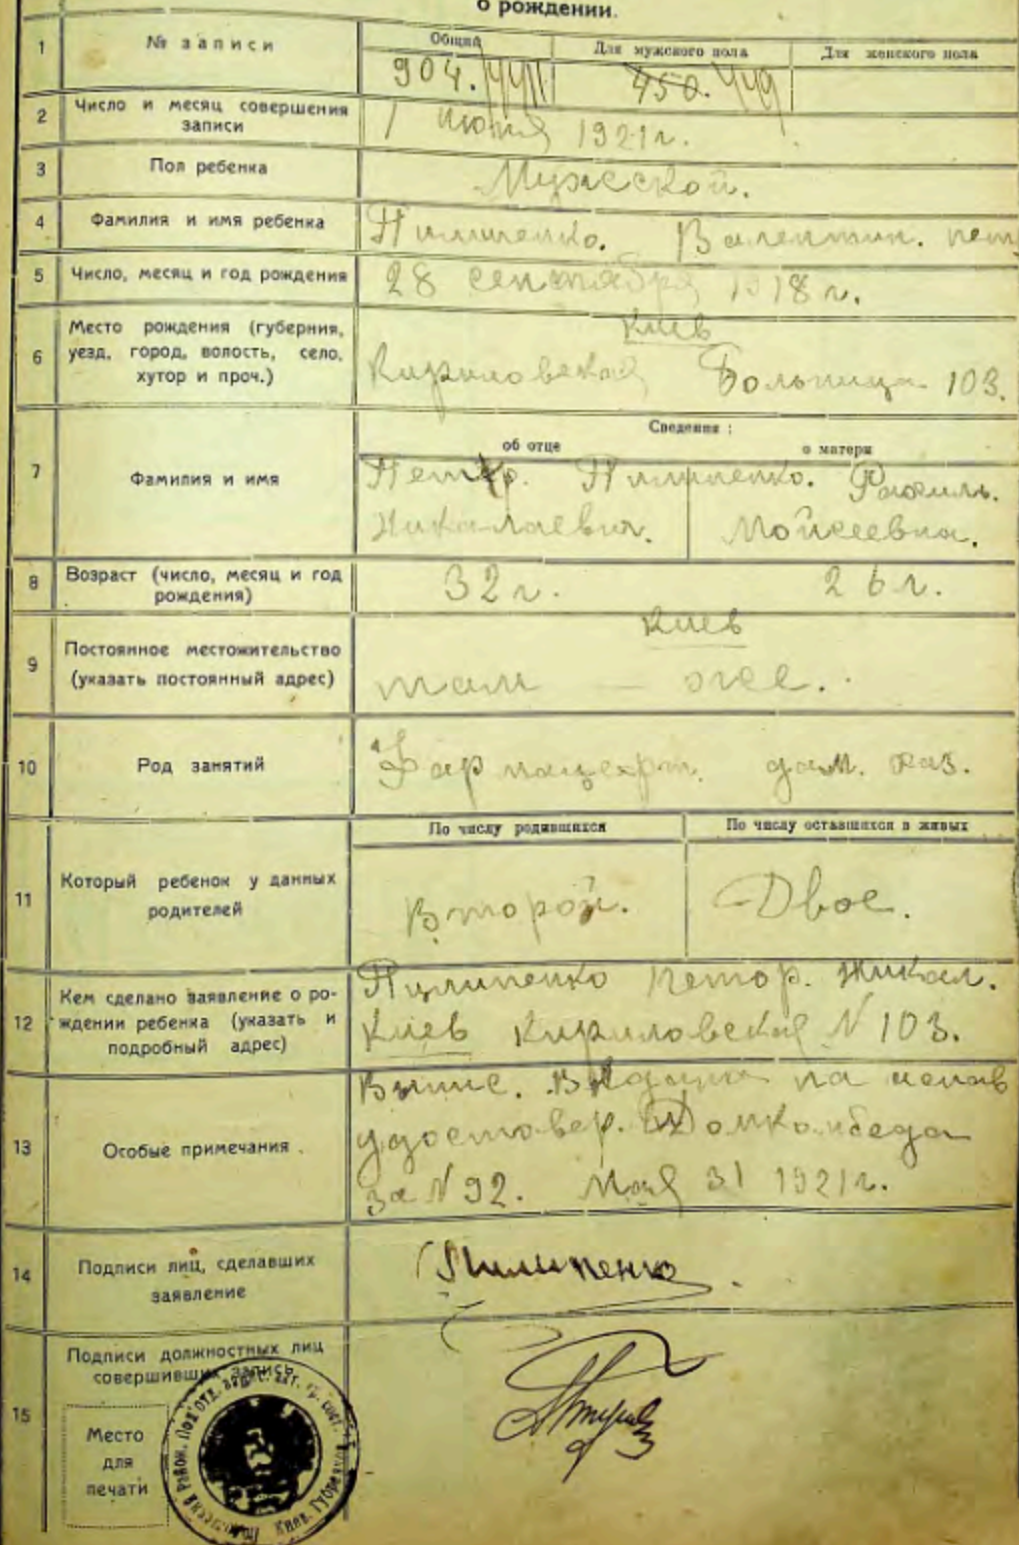 о рождении.
1 № записи Общий Для мужского пола Для женского пола
904. 450. 449
2 Число и месяц совершения записи
1 июня 1921 г.
3 Пол ребенка Мужеской.
4 Фамилия и имя ребенка Пилипенко. Валентин. пет
5 Число, месяц и год рождения 28 сентября 1918 г.
6 Место рождения (губерния, уезд, город, волость, село, хутор и проч.)
Киев
Кириловская Больница 103.
7 Фамилия и имя
Сведения:
об отце о матери
Петр. Пилипенко. Рахиль.
Николаевич. Мойсеевна.
8 Возраст (число, месяц и год рождения) 32 г. 26 г.
9 Постоянное местожительство (указать постоянный адрес)
Киев
там — же.
10 Род занятий дом. хаз.
11 Который ребенок у данных родителей
По числу родившихся По числу оставшихся в живых
Второй. Двое.
12 Кем сделано заявление о рождении ребенка (указать и подробный адрес)
Пилипенко Петор. Никол.
Киев Кириловская N 103.
13 Особые примечания.
на
удостовер. Домкомбеда
за N 92. Мая 31 1921 г.
14 Подписи лиц, сделавших заявление
Пилипенко
15 Подписи должностных лиц совершивших запись
Место
для
печати